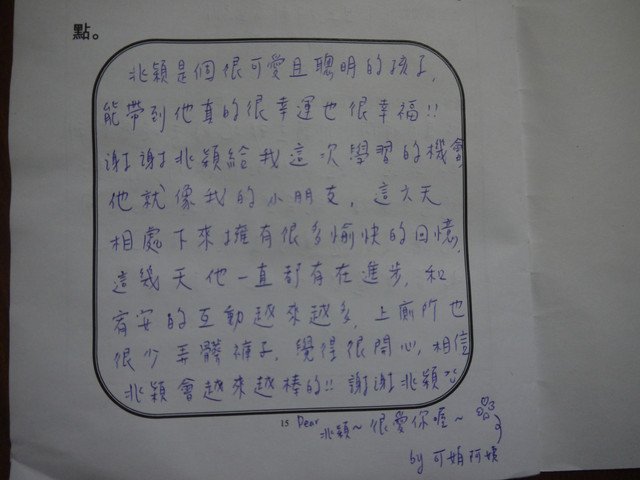 點。
兆穎是個很可愛且聰明的孩子,
能帶到他真的很幸運也很幸福!!
謝謝兆穎給我這次學習的機會
他就像我的小朋友, 這六天
相處下來擁有很多愉快的回憶,
這幾天他一直都有在進步, 和
宥安的互動越來越多, 上廁所也
很少弄髒褲子, 覺得很開心, 相信
兆穎會越來越棒的!! 謝謝兆穎
15 Dear
兆穎~很愛你喔~
by 可娟阿姨